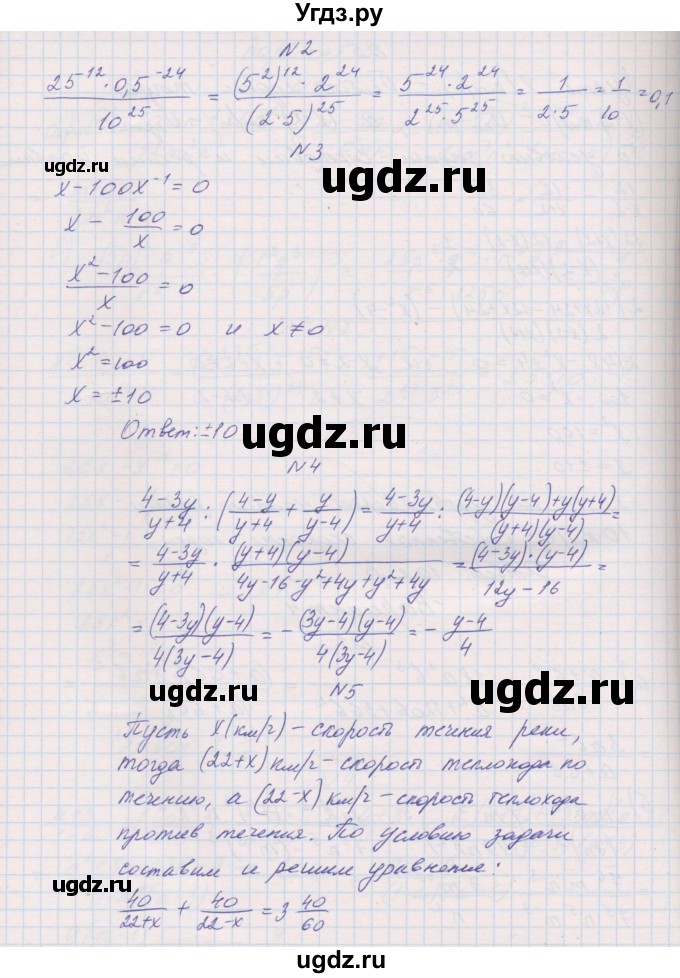 Угдз.ру
N2
25^12 · 0,5^-24 / 10^25 = (5^2)^12 · 2^24 / (2·5)^25 = 5^24 · 2^24 / 2^25 · 5^25 = 1 / 2·5 = 1/10 = 0,1
N3
ugdz.ru
ugdz.ru
x - 100x^-1 = 0
x - 100/x = 0
x^2 - 100 / x = 0
x^2 - 100 = 0 и x ≠ 0
x^2 = 100
x = ±10
Ответ: ±10
ugdz.ru
N4
4-3y / y+4 : (4-y / y+4 + y / y-4) = 4-3y / y+4 : (4-y)(y-4)+y(y+4) / (y+4)(y-4) =
= 4-3y / y+4 · (y+4)(y-4) / 4y-16-y^2+4y+y^2+4y = (4-3y)·(y-4) / 12y-16 =
= (4-3y)(y-4) / 4(3y-4) = - (3y-4)(y-4) / 4(3y-4) = - y-4 / 4
ugdz.ru
N5
ugdz.ru
Пусть x (км/г) - скорость течения реки,
тогда (22+x) км/г - скорость теплохода по
течению, а (22-x) км/г - скорость теплохода
против течения. По условию задачи
составим и решим уравнение:
ugdz.ru
40 / 22+x + 40 / 22-x = 3 40/60
ugdz.ru